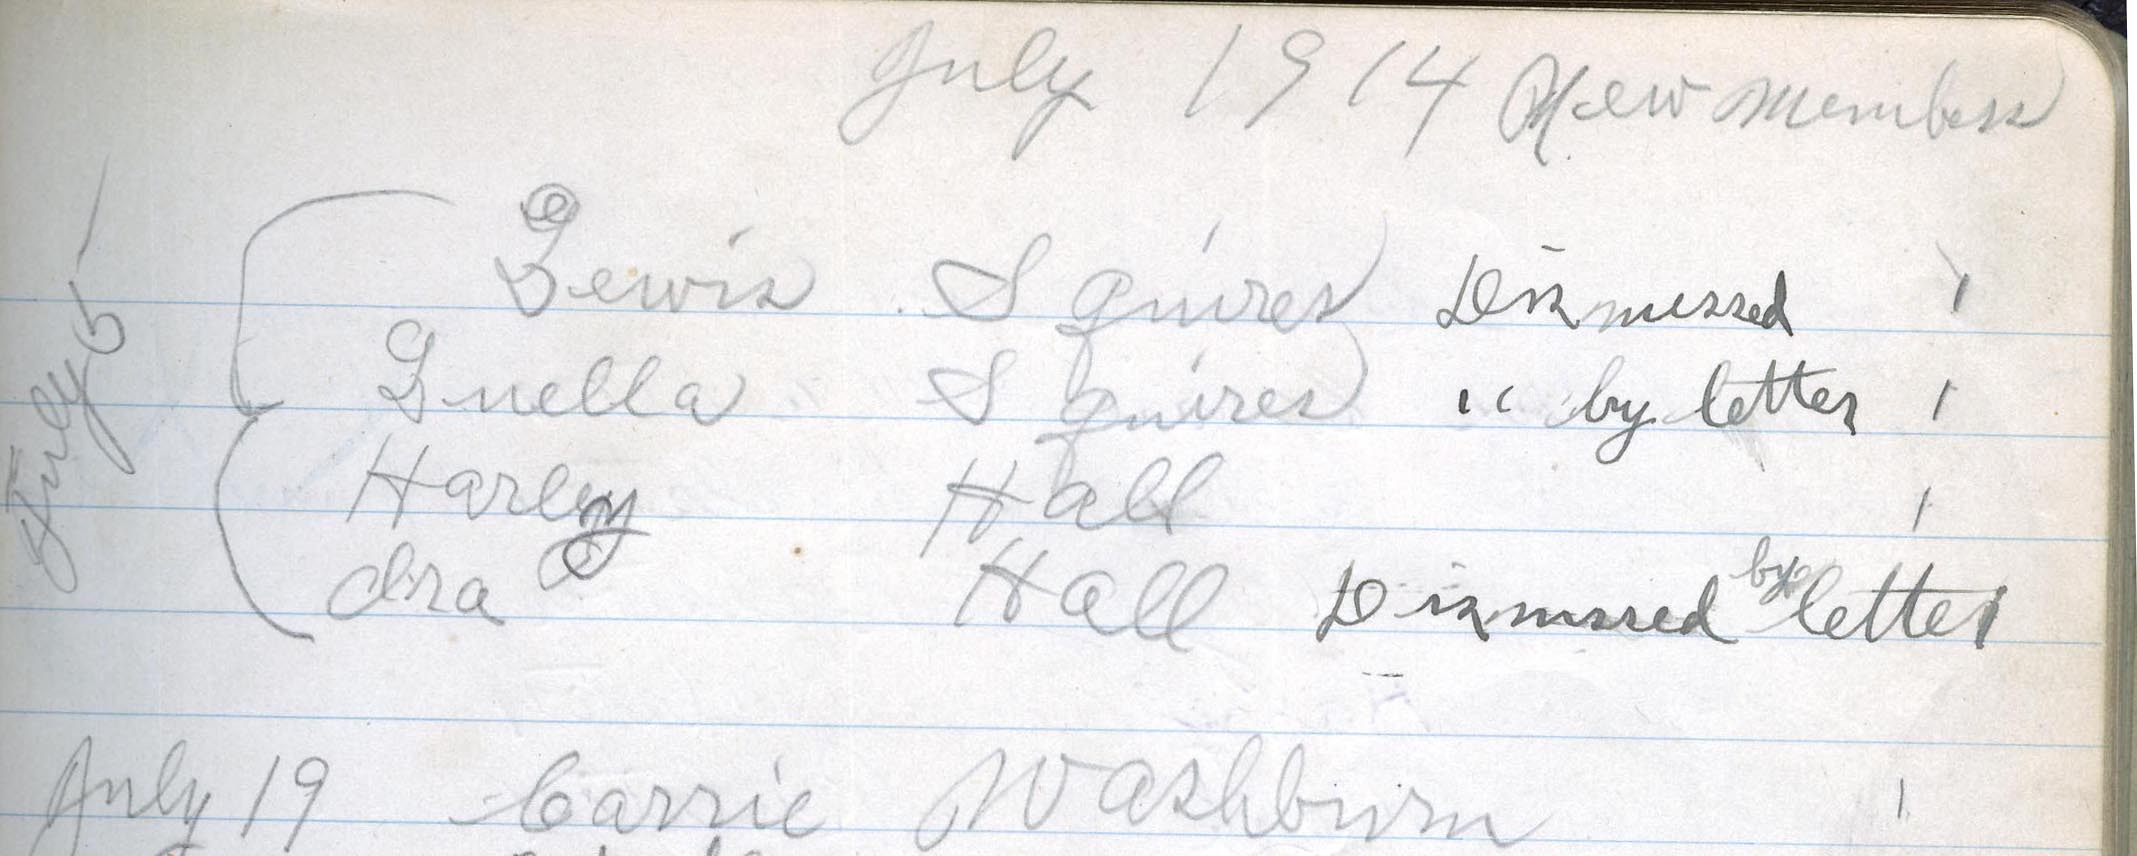 July 1914 New Members
July 5
Lewis Squires Dismissed
Luella Squires " by letter
Harley Hall
Ira Hall Dismissed by letter
July 19 Carrie Washburn